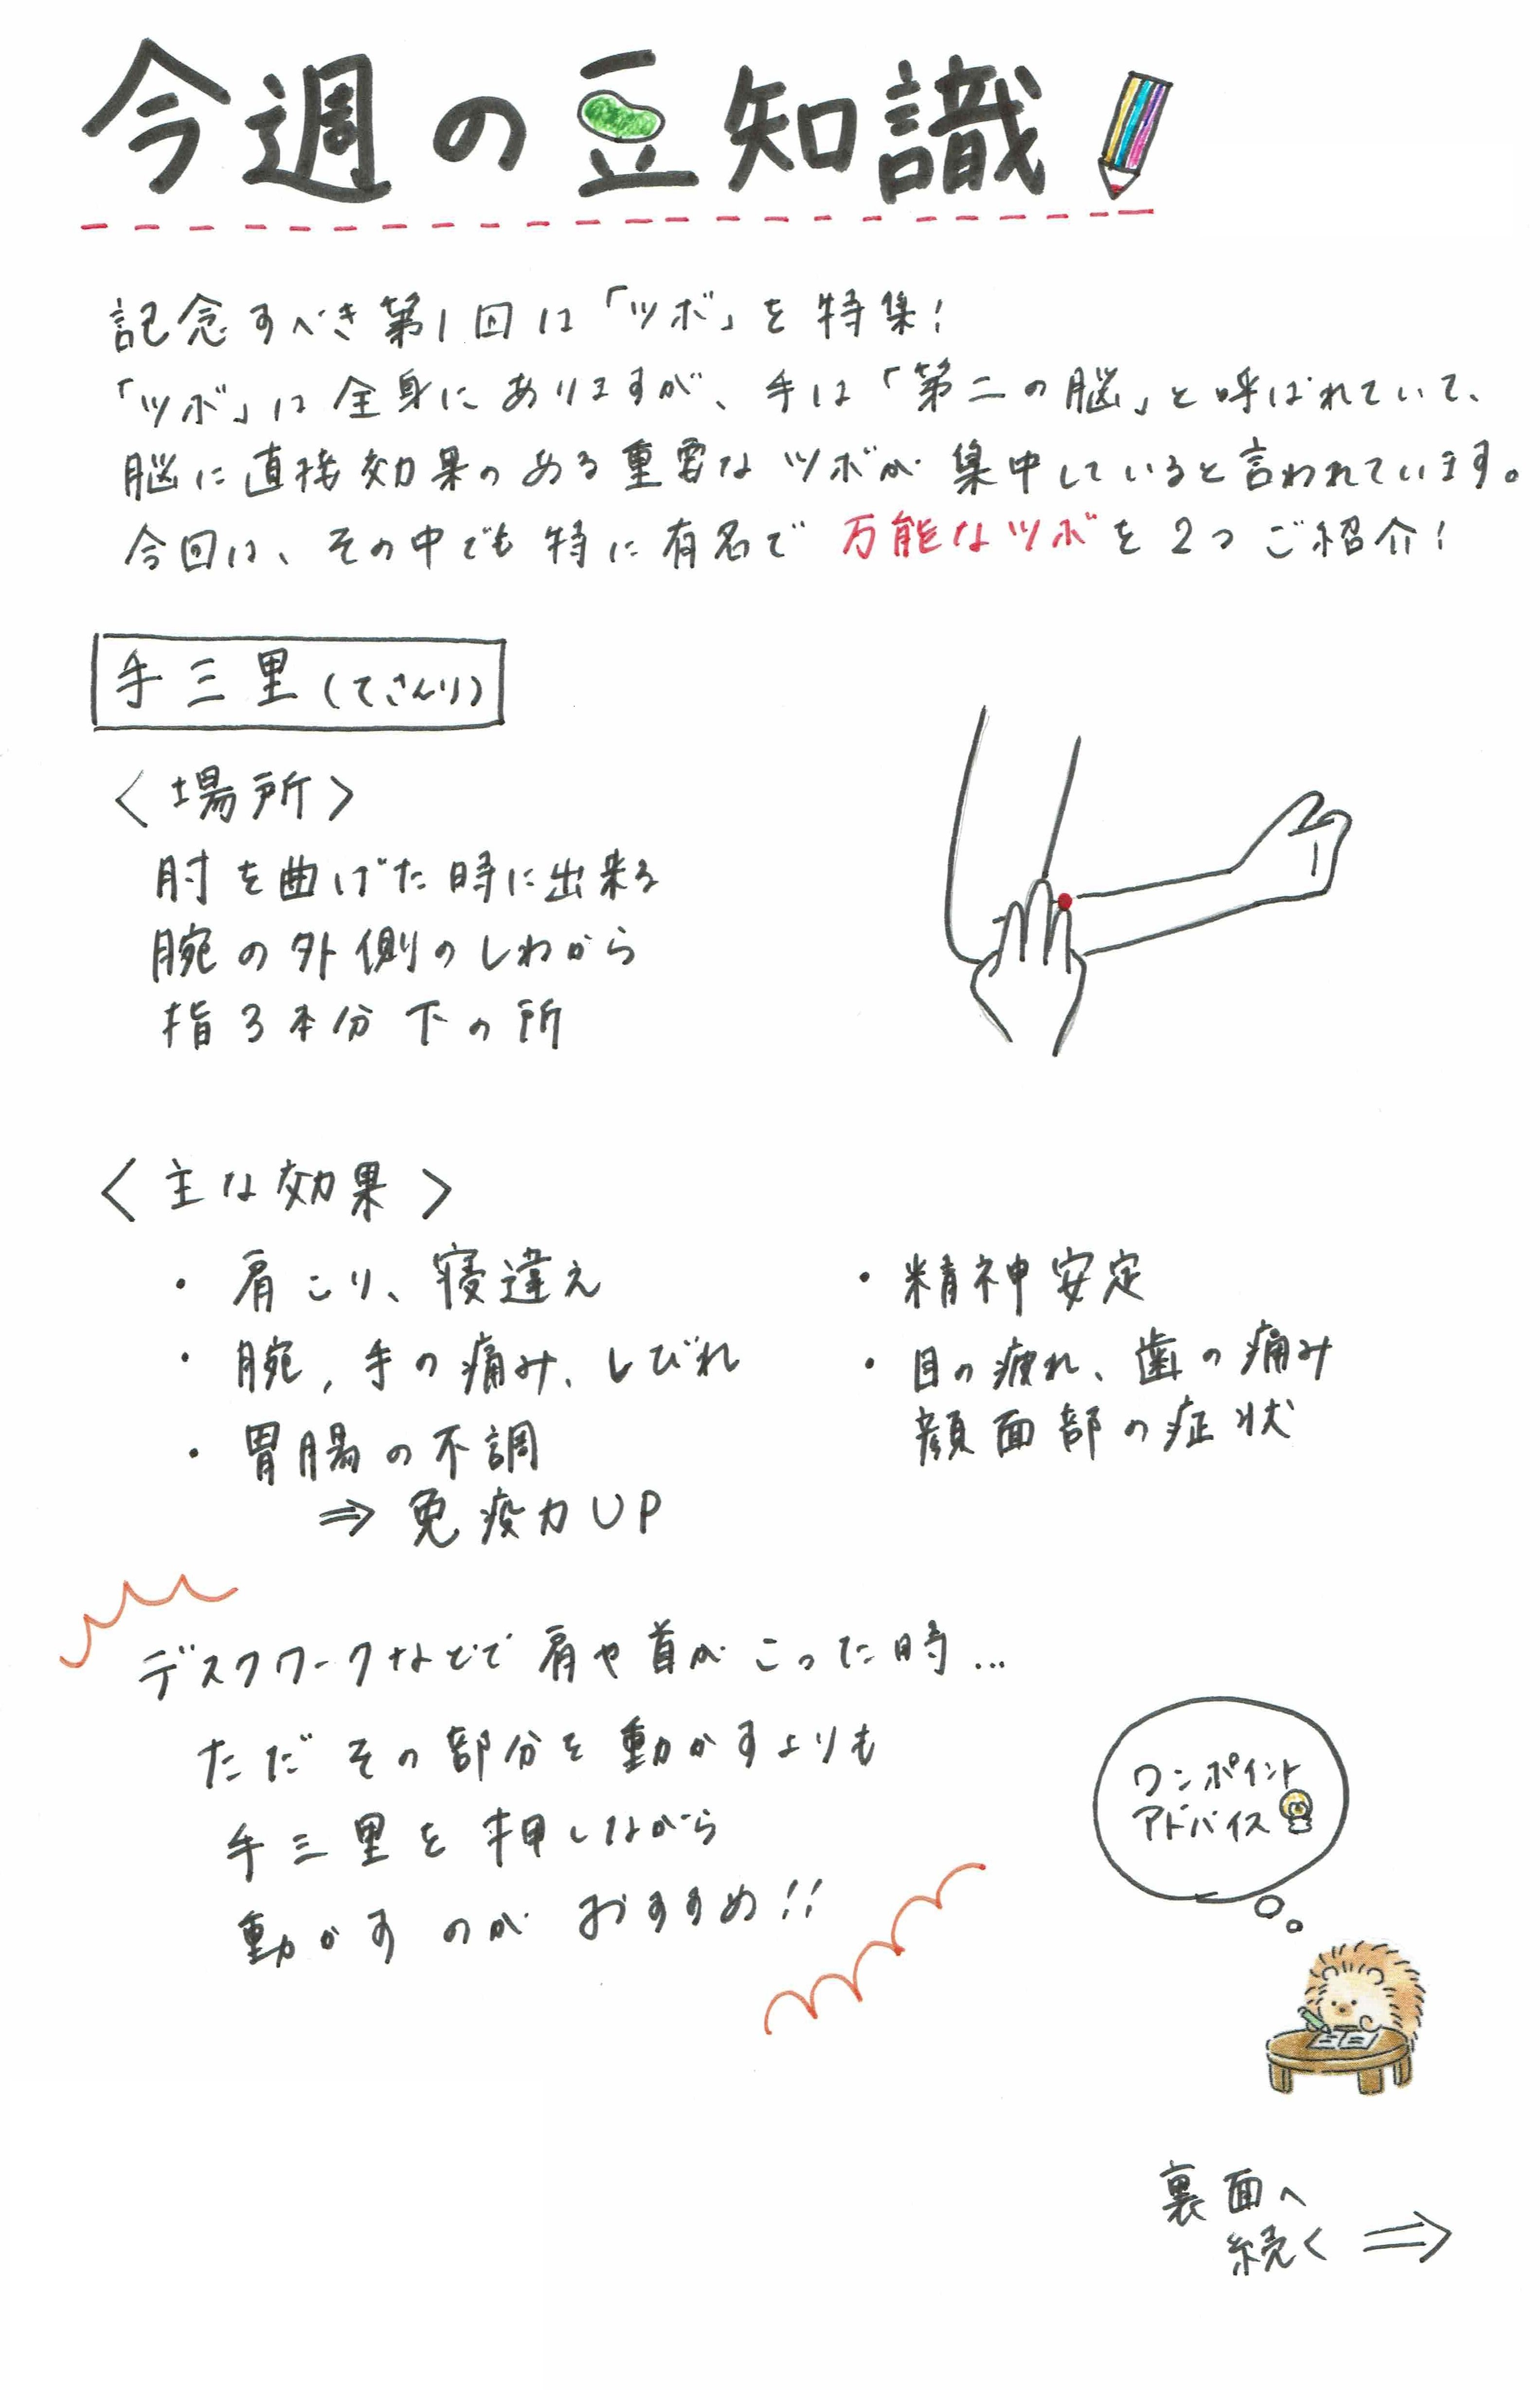 今週の豆知識
記念すべき第1回は「ツボ」を特集!
「ツボ」は全身にありますが、手は「第二の脳」と呼ばれていて、
脳に直接効果のある重要なツボが集中していると言われています。
今回は、その中でも特に有名で万能なツボを2つご紹介!
手三里(てさんり)
<場所>
肘を曲げた時に出来る
腕の外側のしわから
指3本分下の所
<主な効果>
・肩こり、寝違え
・腕,手の痛み、しびれ
・胃腸の不調
⇒免疫力UP
・精神安定
・目の疲れ、歯の痛み
顔面部の症状
デスクワークなどで肩や首がこった時...
ただその部分を動かすよりも
手三里を押しながら
動かすのがおすすめ!!
ワンポイント
アドバイス
裏面へ
続く ⇒